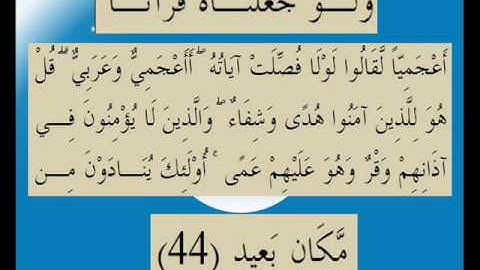 وَلَوْ جَعَلْنَاهُ قُرْآنًا
أَعْجَمِيّاً لَّقَالُوا لَوْلَا فُصِّلَتْ آيَاتُهُ ۖ أَأَعْجَمِيٌّ وَعَرَبِيٌّ ۗ قُلْ
هُوَ لِلَّذِينَ آمَنُوا هُدًى وَشِفَاءٌ ۖ وَالَّذِينَ لَا يُؤْمِنُونَ فِي
آذَانِهِمْ وَقْرٌ وَهُوَ عَلَيْهِمْ عَمًى ۚ أُوْلَئِكَ يُنَادَوْنَ مِن
مَّكَانٍ بَعِيدٍ (44)